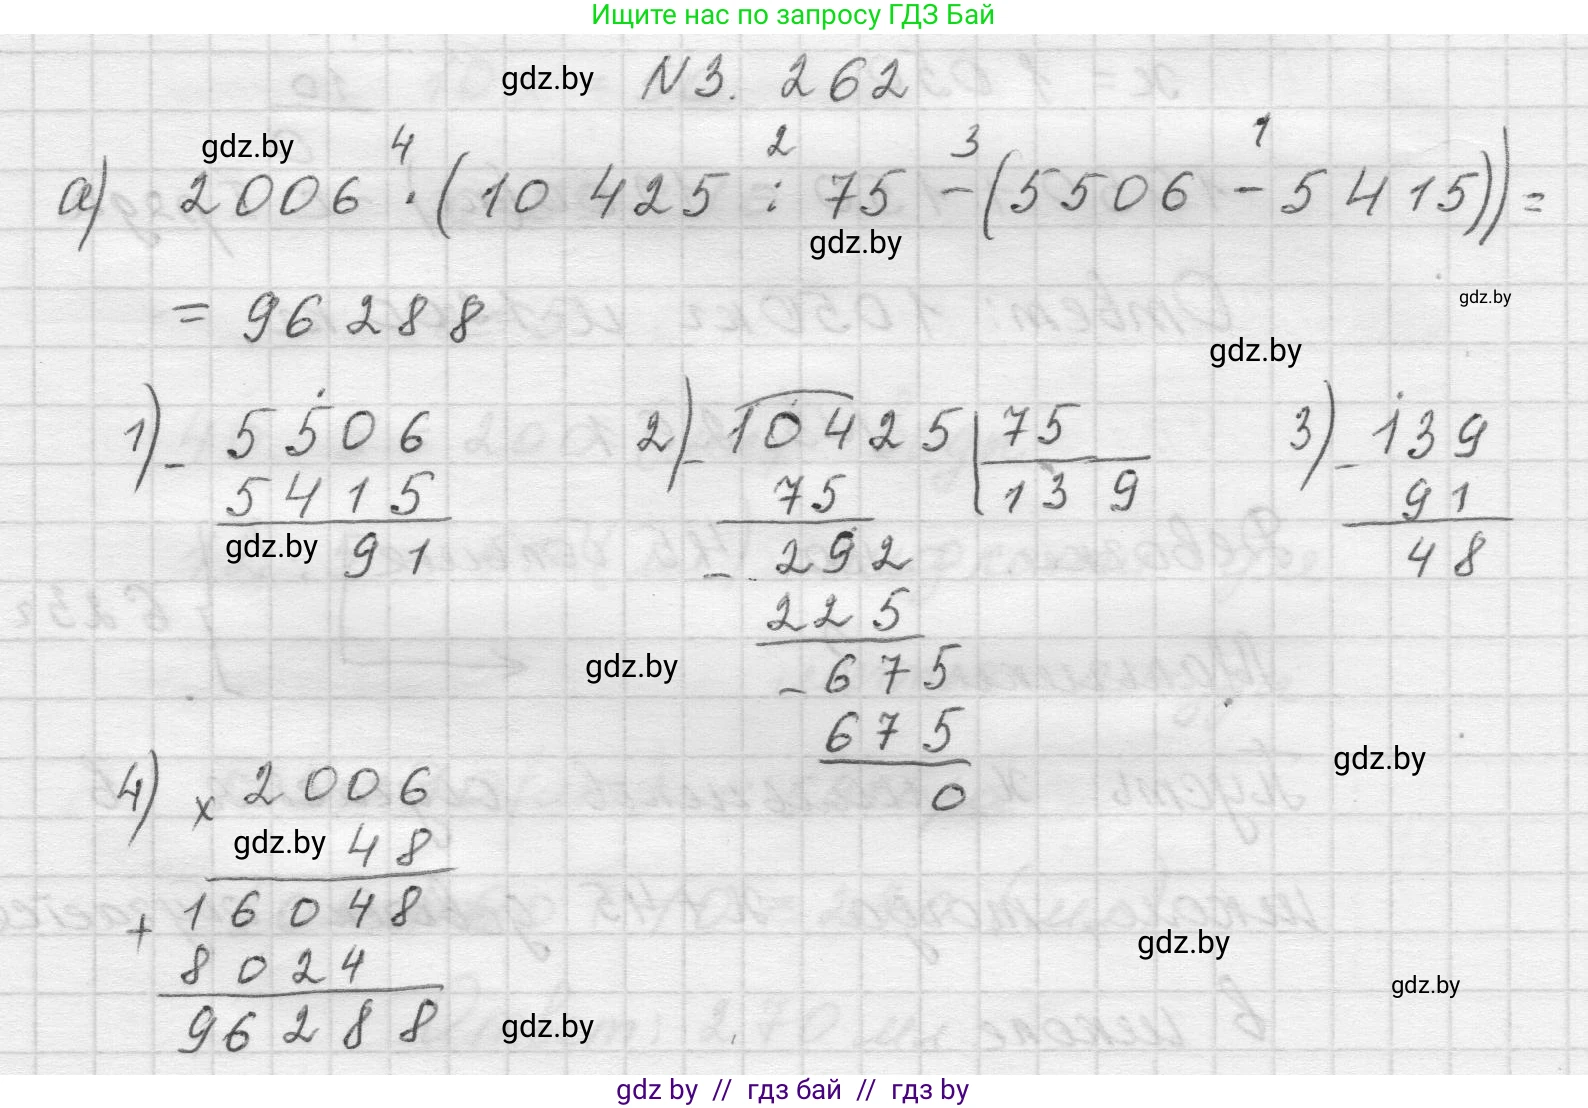 Ищите нас по запросу ГДЗ Бай
gdz.by N 3. 262
gdz.by 4 2 3 1
а) 2006 · (10 425 : 75 - (5506 - 5415)) =
gdz.by
= 96288
gdz.by
gdz.by
1) - 5506
5415
gdz.by 91
2) - 10425 | 75
75 139
- 292
225
gdz.by - 675
675
0
3) - 139
91
48
gdz.by
4) x 2006
gdz.by 48
+ 16048
8024
96288
gdz.by
gdz.by
gdz.by
gdz by // гдз бай // гдз by